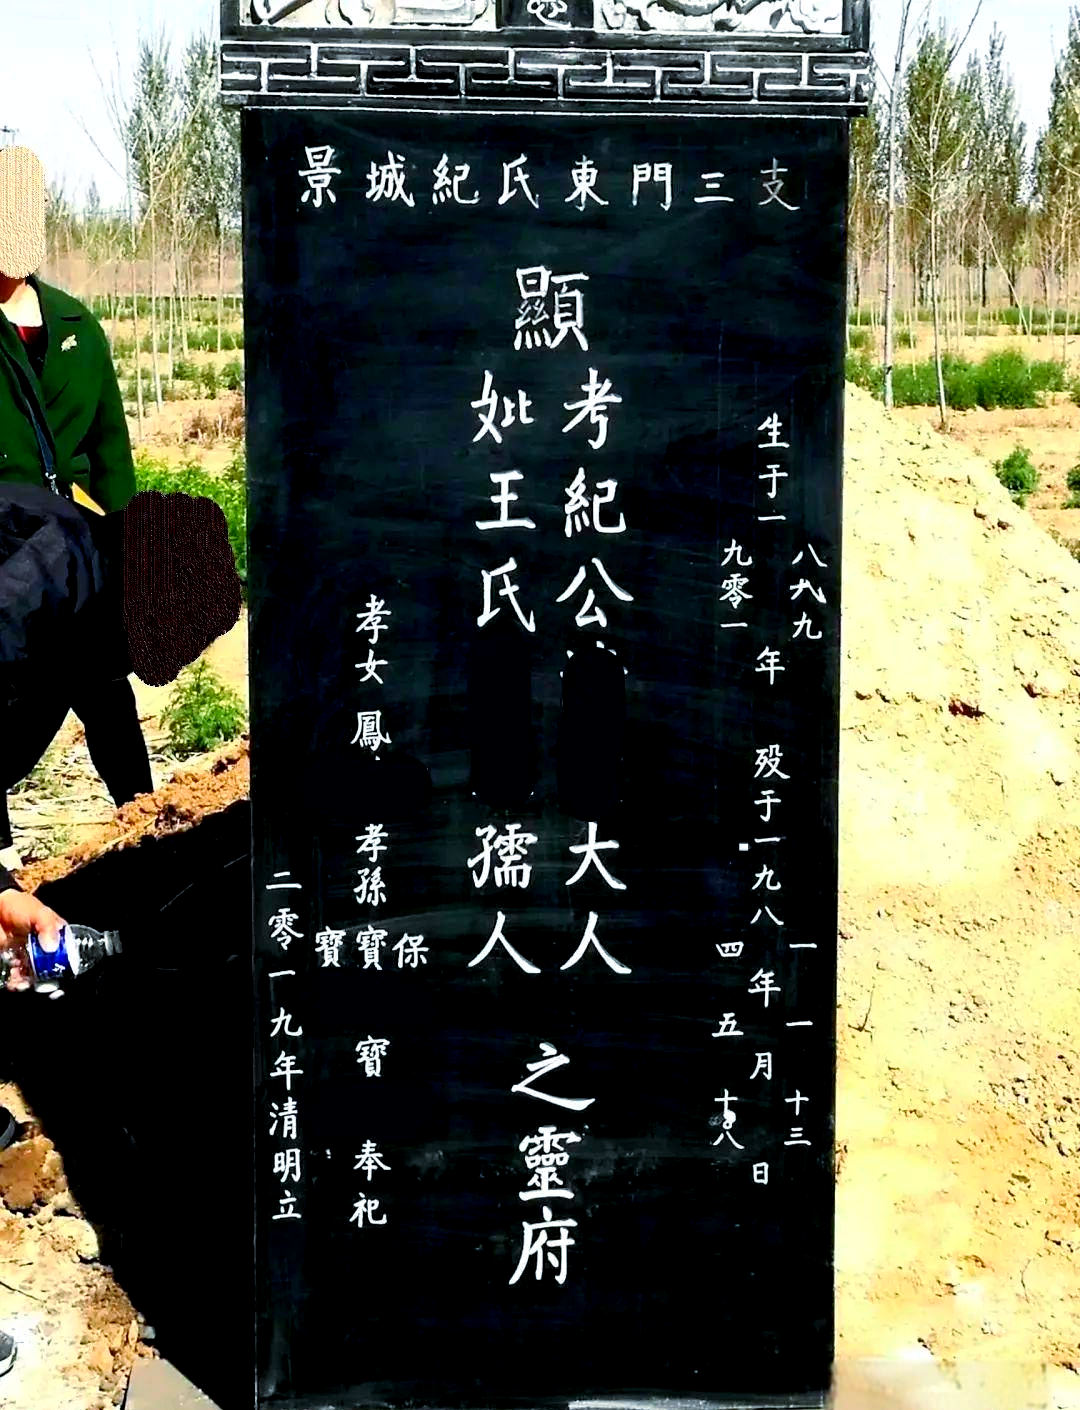 景城紀氏東門三支
生于一
八九
九零一
年
殁于一九八
一
四
年
一
五
月
十三
十八
日
顯
考紀公
大人
妣王氏
孺人
之靈府
孝女鳳
孝孫
保
寶
寶
寶
奉祀
二零一九年清明立